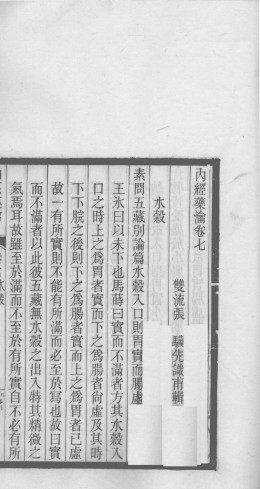 內經藥瀹卷七
雙流張 驥先識甫輯
水穀
素問五藏別論篇水穀入口則胃實而腸虛
王氷曰以未下也馬蒔曰實而不滿者方其水穀入
口之時上之爲胃者實而下之爲腸者尙虛及其時
下下脘之後則下之爲腸者實而上之爲胃者已虛
故一有所實則不能有所滿而必至於寫也故曰實
而不滿者以此彼五藏無水穀之出入特其精微之
氣焉耳故雖至於滿而不至於有所實自不必有所